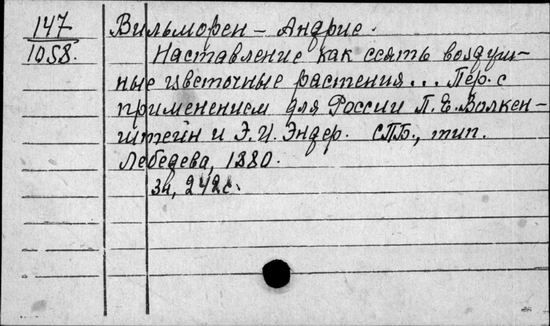 147 Вильморен - Андрие.
1058. Наставление как сеять воздуш-
ные цветочные растения... Пер. с
применением для России П. Е. Волкен-
штейн и Э. И. Эндер. СПБ., тип.
Лебедева, 1880.
34, 242 с.